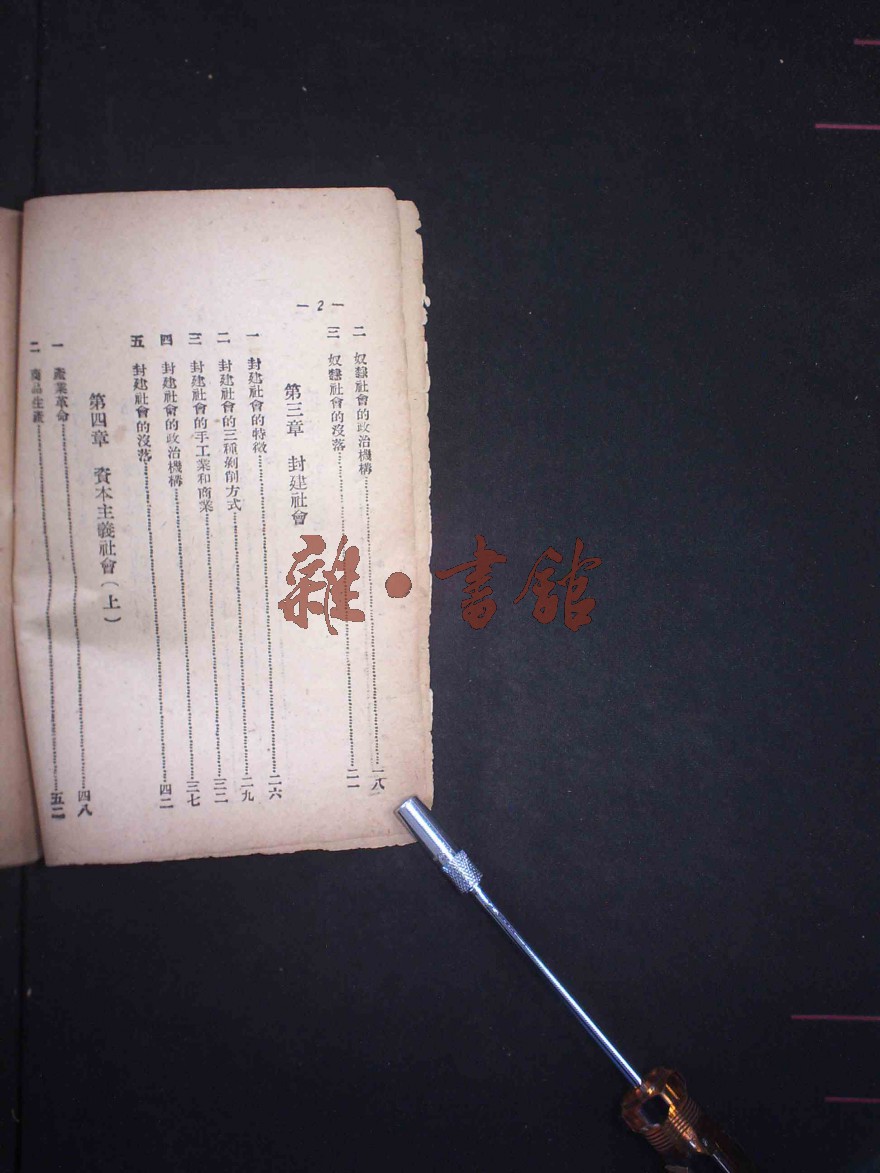 — 2 —
二 奴隸社會的政治機構……一八
三 奴隸社會的沒落……二一
第三章 封建社會
一 封建社會的特徵……二六
二 封建社會的三種剝削方式……二九
三 封建社會的手工業和商業……三二
四 封建社會的政治機構……三七
五 封建社會的沒落……四二
第四章 資本主義社會(上)
一 產業革命……四八
二 商品生產……五二
雜·書館